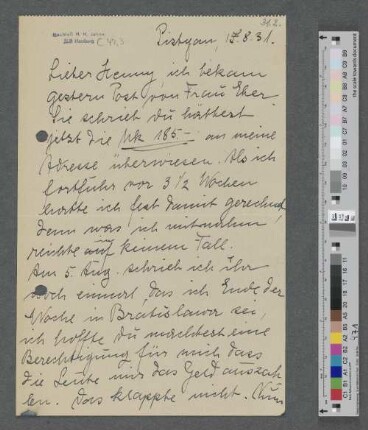 31.2.
Nachlaß H. H. Jahnn
StUB Hamburg
Pistyan, 15.8.31.
Lieber Henny, ich bekam
gestern Post von Frau Eker
Sie schrieb du hättest
jetzt die Mk 185- an meine
Adresse überwiesen. Als ich
fortfuhr vor 3 1/2 Wochen
hatte ich fest damit gerechnet
denn was ich mitnahm,
reichte auf keinem Fall.
Am 5. Aug. schrieb ich ihr
noch einmal, das ich Ende der
Woche in Bratislawa sei,
ich hoffte du machtest eine
Berechtigung für mich dass
die Leute mir das Geld auszah-
len. Das klappte nicht. Nun